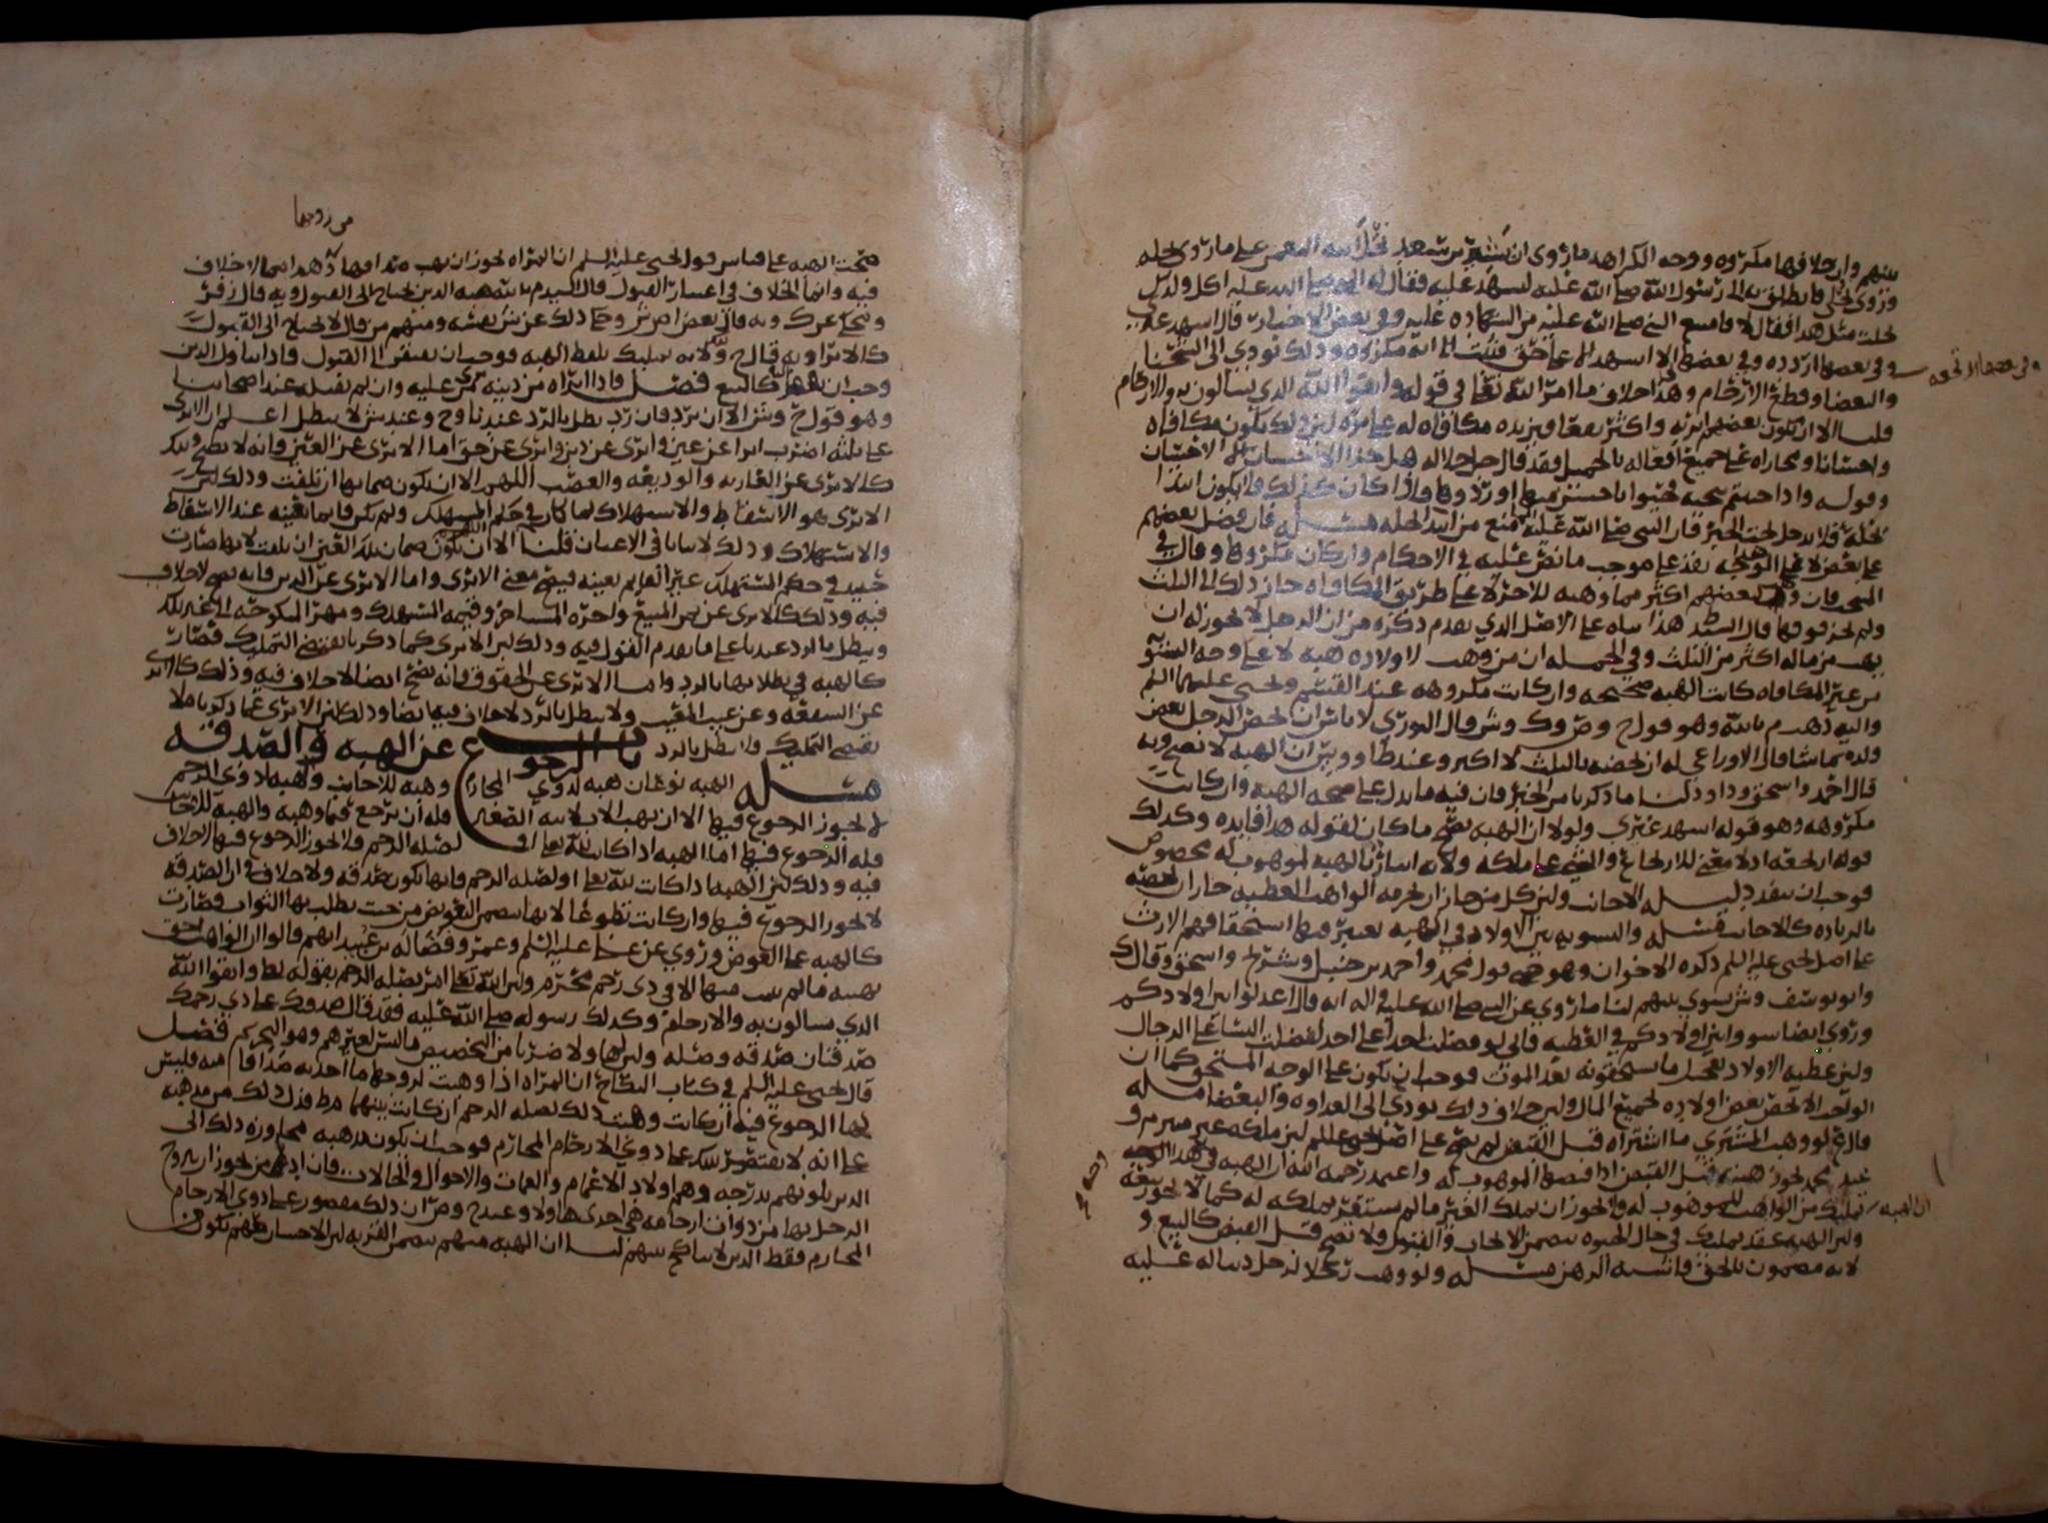 بينهم وان خلافها مكروه ووجه الكراهه ما روى ان بشير بن سعد نحل ابنه النعمن على ما روى نحله
وروى نحلى فانطلق به الى رسول الله صلى الله عليه ليشهد عليه فقال له النبي صلى الله عليه اكل ولدك
نحلت مثل هذا فقال لا فامتنع النبي صلى الله عليه من الشهاده عليه وفي بعض الاخبار قال اشهد غيري
وفي بعضها اردده وفي بعضها لا اشهد الا على حق فثبت انه مكروه وذلك يودي الى الشحنا
وفي بعضها الا لحقه
والبغضا وقطع الارحام وهذا خلاف ما امر الله تعالى في قوله واتقوا الله الذي تسالون به والارحام
قلنا الا ان يكون بعضهم ابر به واكثر نفعا فيزيده مكافاه له على بره لان ذلك يكون مكافاه
واحسانا ومجازاه على جميع افعاله بالجميل فقد قال جل جلاله هل جزا الاحسان الا الاحسان
وقوله واذا حييتم بتحيه فحيوا باحسن منها او ردوها فاذا كان كذلك فلا يكون ابتدا
نحله فلا يدخل تحت الخبر فان النبي صلى الله عليه انما منع من ابتدا النحله مسئله فان فضل بعضهم
على بعض لا على هذا الوجه نفذ على موجب ما نص عليه في الاحكام وان كان مكروها وقال في
المنتخب فان وهب لبعضهم اكثر مما وهبه للاخر لا على طريق المكافاه جاز ذلك الى الثلث
ولم يجز فوقها قال السيد هذا بناه على الاصل الذي تقدم ذكره من ان الرجل لا يجوز له ان
يهب من ماله اكثر من الثلث وفي الجمله ان من وهب لاولاده هبه لا على وجه التسويه
من غير المكافاه كانت الهبه صحيحه وان كانت مكروهه عند القسم ويحيى عليهما السلم
واليه ذهب م بالله وهو قول ح وص وك وش وقال الثوري لا باس ان يخص الرجل بعض
ولده بما شا وقال الاوزاعي له ان يخصه بالثلث لا اكثر وعند طاووس ان الهبه لا تصح وبه
قال احمد واسحق وداود لنا ما ذكرنا من الخبر فان فيه ما يدل على صحه الهبه وان كانت
مكروهه وهو قوله اشهد غيري ولولا ان الهبه تصح ما كان لقوله هذا فايده وكذلك
قوله ارتجعه اذ لا معنى للارتجاع والشي على ملكه ولانه اسار بالهبه لموهوب له مخصوص
فوجب ان ينفذ دليله الاجانب ولان كل من جاز ان يحرمه الواهب العطيه جاز ان يخصه
بالزياده كالاجانب مسئله والتسويه بين الاولاد في الهبه يعتبر فيها استحقاقهم الارث
على اصل يحيى عليه السلم ذكره الاخوان وهو قول محمد واحمد بن حنبل وشريح واسحق وقال ك
وابو يوسف وش يسوي بينهم لنا ما روي عن النبي صلى الله عليه واله انه قال اعدلوا بين اولادكم
وروي ايضا سووا بين اولادكم في العطيه فاني لو فضلت احدا على احد لفضلت النسا على الرجال
ولان عطيه الاولاد تعجيل ما يستحقونه بعد الموت فوجب ان يكون على الوجه المستحق كما ان
الواجب الا يخص بعض اولاده لجميع المال ولان خلاف ذلك يودي الى العداوه والبغضا مسئله
قال ع لو وهب المشتري ما اشتراه قبل القبض لم يصح على اصل يحيى علم لان ملكه غير مبرم و
عند محمد يجوز هبته قبل القبض اذا قبضها الموهوب له واعتمد رحمه الله ان الهبه في هذا الوجه
ان الهبه تمليك من الواهب للموهوب له ولا يجوز ان يملك الغير ما لم يستقر بملكه له كما لا يجوز بيعه
وجه ح
ولان الهبه عقد تمليك في حال الحيوه يتضمن الايجاب والقبول ولا تصح قبل القبض كالبيع و
لانه مضمون بالحق فاشبه الرهن مسئله ولو وهب رجلا لرجل دينا له عليه
من زوجها
صحت الهبه على قياس قول يحيى عليه السلم ان المراه يجوز ان تهب صداقها وهذا مما لا خلاف
فيه وانما الخلاف في اعتبار القبول قال السيد م بالله هبه الدين يحتاج الى القبول وبه قال زفر
وبعض اصش وحكي ذلك عن ش نفسه ومنهم من قال لا يحتاج الى القبول
كالابرا وبه قال ح ولانه تمليك بلفظ الهبه فوجب ان يفتقر الى القبول فاذا تناول الدين
وجب ان يفتقر كالبيع فصل فاذا ابراه من دينه برى عليه وان لم يقبله عند اصحابنا
وهو قول ح وش الا ان يرد فان رد بطل بالرد عندنا وح وعند ش لا يبطل اعلم ان الابرى
على ثلثه اضرب ابرا عن عين وابرى عن دين وابرى عن حق اما الابرى عن العين فانه لا يصح وذلك
كالابرى عن العاريه والوديعه والغصب اللهم الا ان يكون ضمانها ان تلفت وذلك لان
الابرى هو الاسقاط والاستهلاك لما كان في حكم المستهلك ولم يكن قايما بعينه عند الاسقاط
والاستهلاك وذلك لا يتاتى في الاعيان قلنا الا ان يكون ضمان تلك العين ان تلفت لانها صارت
حينئذ في حكم المستهلك غير القايم بعينه فيصح معنى الابرى واما الابرى عن الدين فانه يصح لا خلاف
فيه وذلك كالابرى عن ثمن المبيع واجره المستاجر وقيمه المستهلك ومهر المنكوحه الى غير ذلك
ويبطل بالرد عندنا على ما تقدم القول فيه وذلك لان الابرى كما ذكرنا يقتضي التمليك فصارت
كالهبه في بطلانها بالرد واما الابرى عن الحقوق فانه يصح ايضا لا خلاف فيه وذلك كالابرى
عن الشفعه وعن عيب المعيب ولا يبطل بالرد لا خلاف فيه ايضا وذلك لان الابرى عما ذكرنا لا
يقتضي التمليك فلا يبطل بالرد باب الرجوع عن الهبه والصدقه
مسئله الهبه نوعان هبه لذوي المحارم وهبه للاجانب والهبه لاذوي الرحم
لا يجوز الرجوع فيها الا ان يهب الاب لابنه الصغير فله ان يرجع فيما وهبه والهبه للاجانب
فله الرجوع فيها اما الهبه اذا كانت لله تعالى او لصله الرحم فلا يجوز الرجوع فيها لا خلاف
فيه وذلك لان الهبه اذا كانت لله تعالى او لصله الرحم فانها تكون صدقه ولا خلاف في ان الصدقه
لا يجوز الرجوع فيها وان كانت تطوعا لانها تتضمن التعويض من حيث يطلب بها الثواب فصارت
كالهبه على العوض وروي عن علي عليه السلم وعمر وفضاله بن عبيد انهم قالوا ان الواهب احق
بهبته ما لم يثب منها الا في ذي رحم محرم ولان الله تعالى امر بصله الرحم بقوله تعالى واتقوا الله
الذي تسالون به والارحام وكذلك رسوله صلى الله عليه فقد قال صدقتك على ذي رحمك
صدقتان صدقه وصله ولان لها ولا ضربا من التخصيص ما ليس لغيرهم وهو التحريم فصل
قال يحيى عليه السلم في كتاب النكاح ان المراه اذا وهبت لزوجها ما اخذته صداقا منه فليس
لها الرجوع فيه ان كانت وهبت ذلك لصله الرحم ان كانت بينهما فدل ذلك من مذهبه
على انه لا يقتصر بذلك على ذوي الارحام المحارم فوجب ان يكون مذهبه مجاوزه ذلك الى
الذين يلونهم بدرجه وهم اولاد الاعمام والعمات والاخوال والخالات فان ادعى من يجوز ان يتزوج
الرجل بها من ذوات ارحامه هي احدى هاولا وعند ح وص ان ذلك مقصور على ذوي الارحام
المحارم فقط الذين لا يتناكح بينهم لنا ان الهبه منهم تتضمن القربه لان الاحسان اليهم يكون من